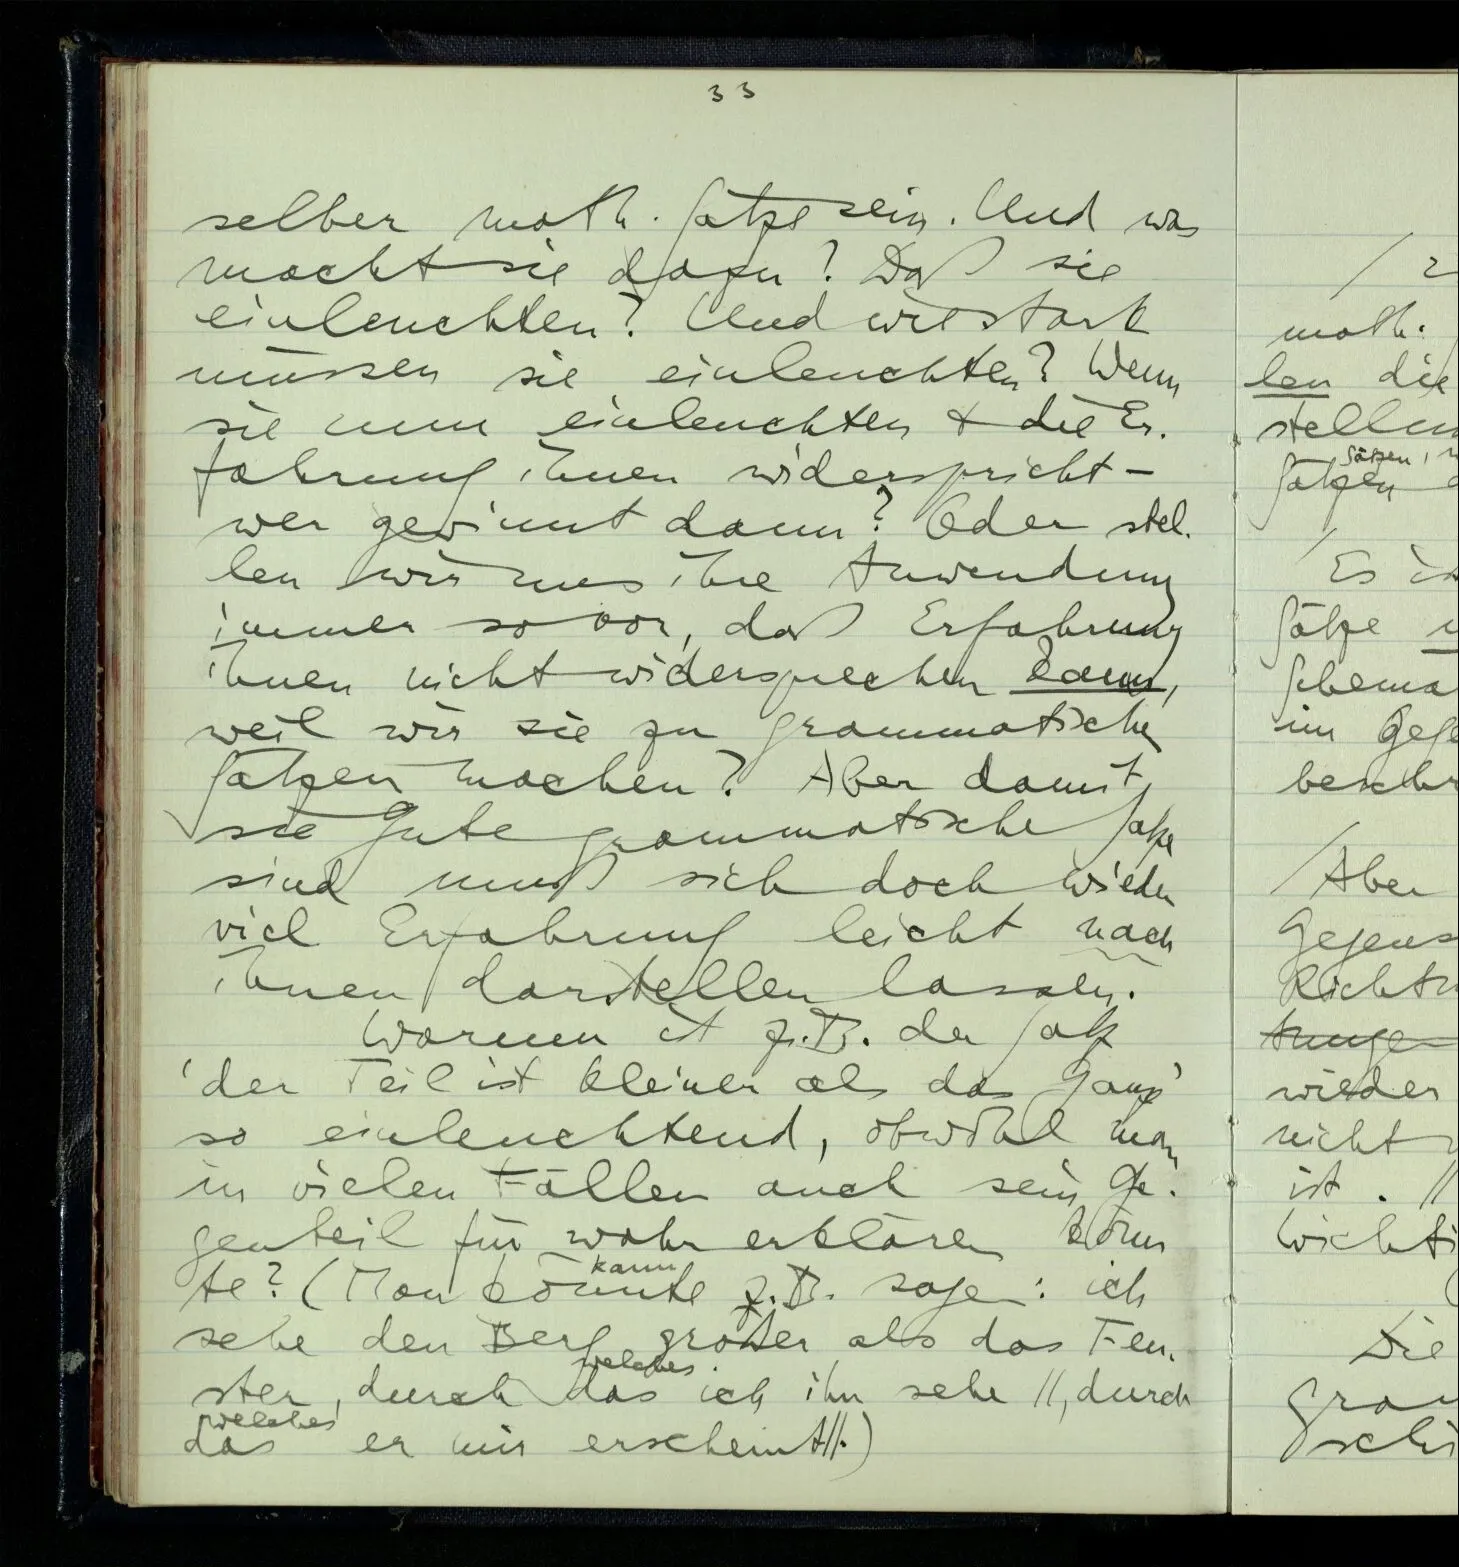 33
selber math. Sätze sein. Und was
macht sie dazu? Daß sie
einleuchten? Und wie stark
müssen sie einleuchten? Wenn
sie nun einleuchten & die Er-
fahrung ihnen widerspricht –
wer gewinnt dann? Oder stel-
len wir uns ihre Anwendung
immer so vor, daß Erfahrung
ihnen nicht widersprechen kann,
weil wir sie zu grammatischen
Sätzen machen? Aber damit
sie gute grammatische Sätze
sind muß sich doch wieder
viel Erfahrung leicht nach
ihnen darstellen lassen.
Warum ist z.B. der Satz
'der Teil ist kleiner als das Ganze'
so einleuchtend, obwohl man
in vielen Fällen auch sein Ge-
genteil für wahr erklären könn
te? (Man könnte z.B. sagen: ich
kann
sehe den Berg größer als das Fen-
ster, durch das ich ihn sehe //, durch
welches
das er mir erscheint//.)
welches
math.
len die
Sätzen
Es
Sätze
im
Aber
wieder
nicht
ist. //
Die